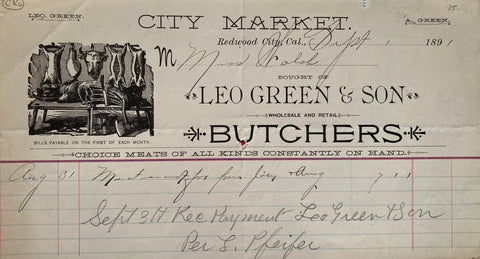 LEO. GREEN.
A. GREEN.
CITY MARKET.
Redwood City, Cal., Sept 1 1891
M Miss Walsh
BOUGHT OF
LEO GREEN & SON
WHOLESALE AND RETAIL
BUTCHERS
BILLS PAYABLE ON THE FIRST OF EACH MONTH.
CHOICE MEATS OF ALL KINDS CONSTANTLY ON HAND.
Aug 31 Meat for & Aug 7 11
Sept 3rd Rec Payment Leo Green & Son
Per L. Pfeifer